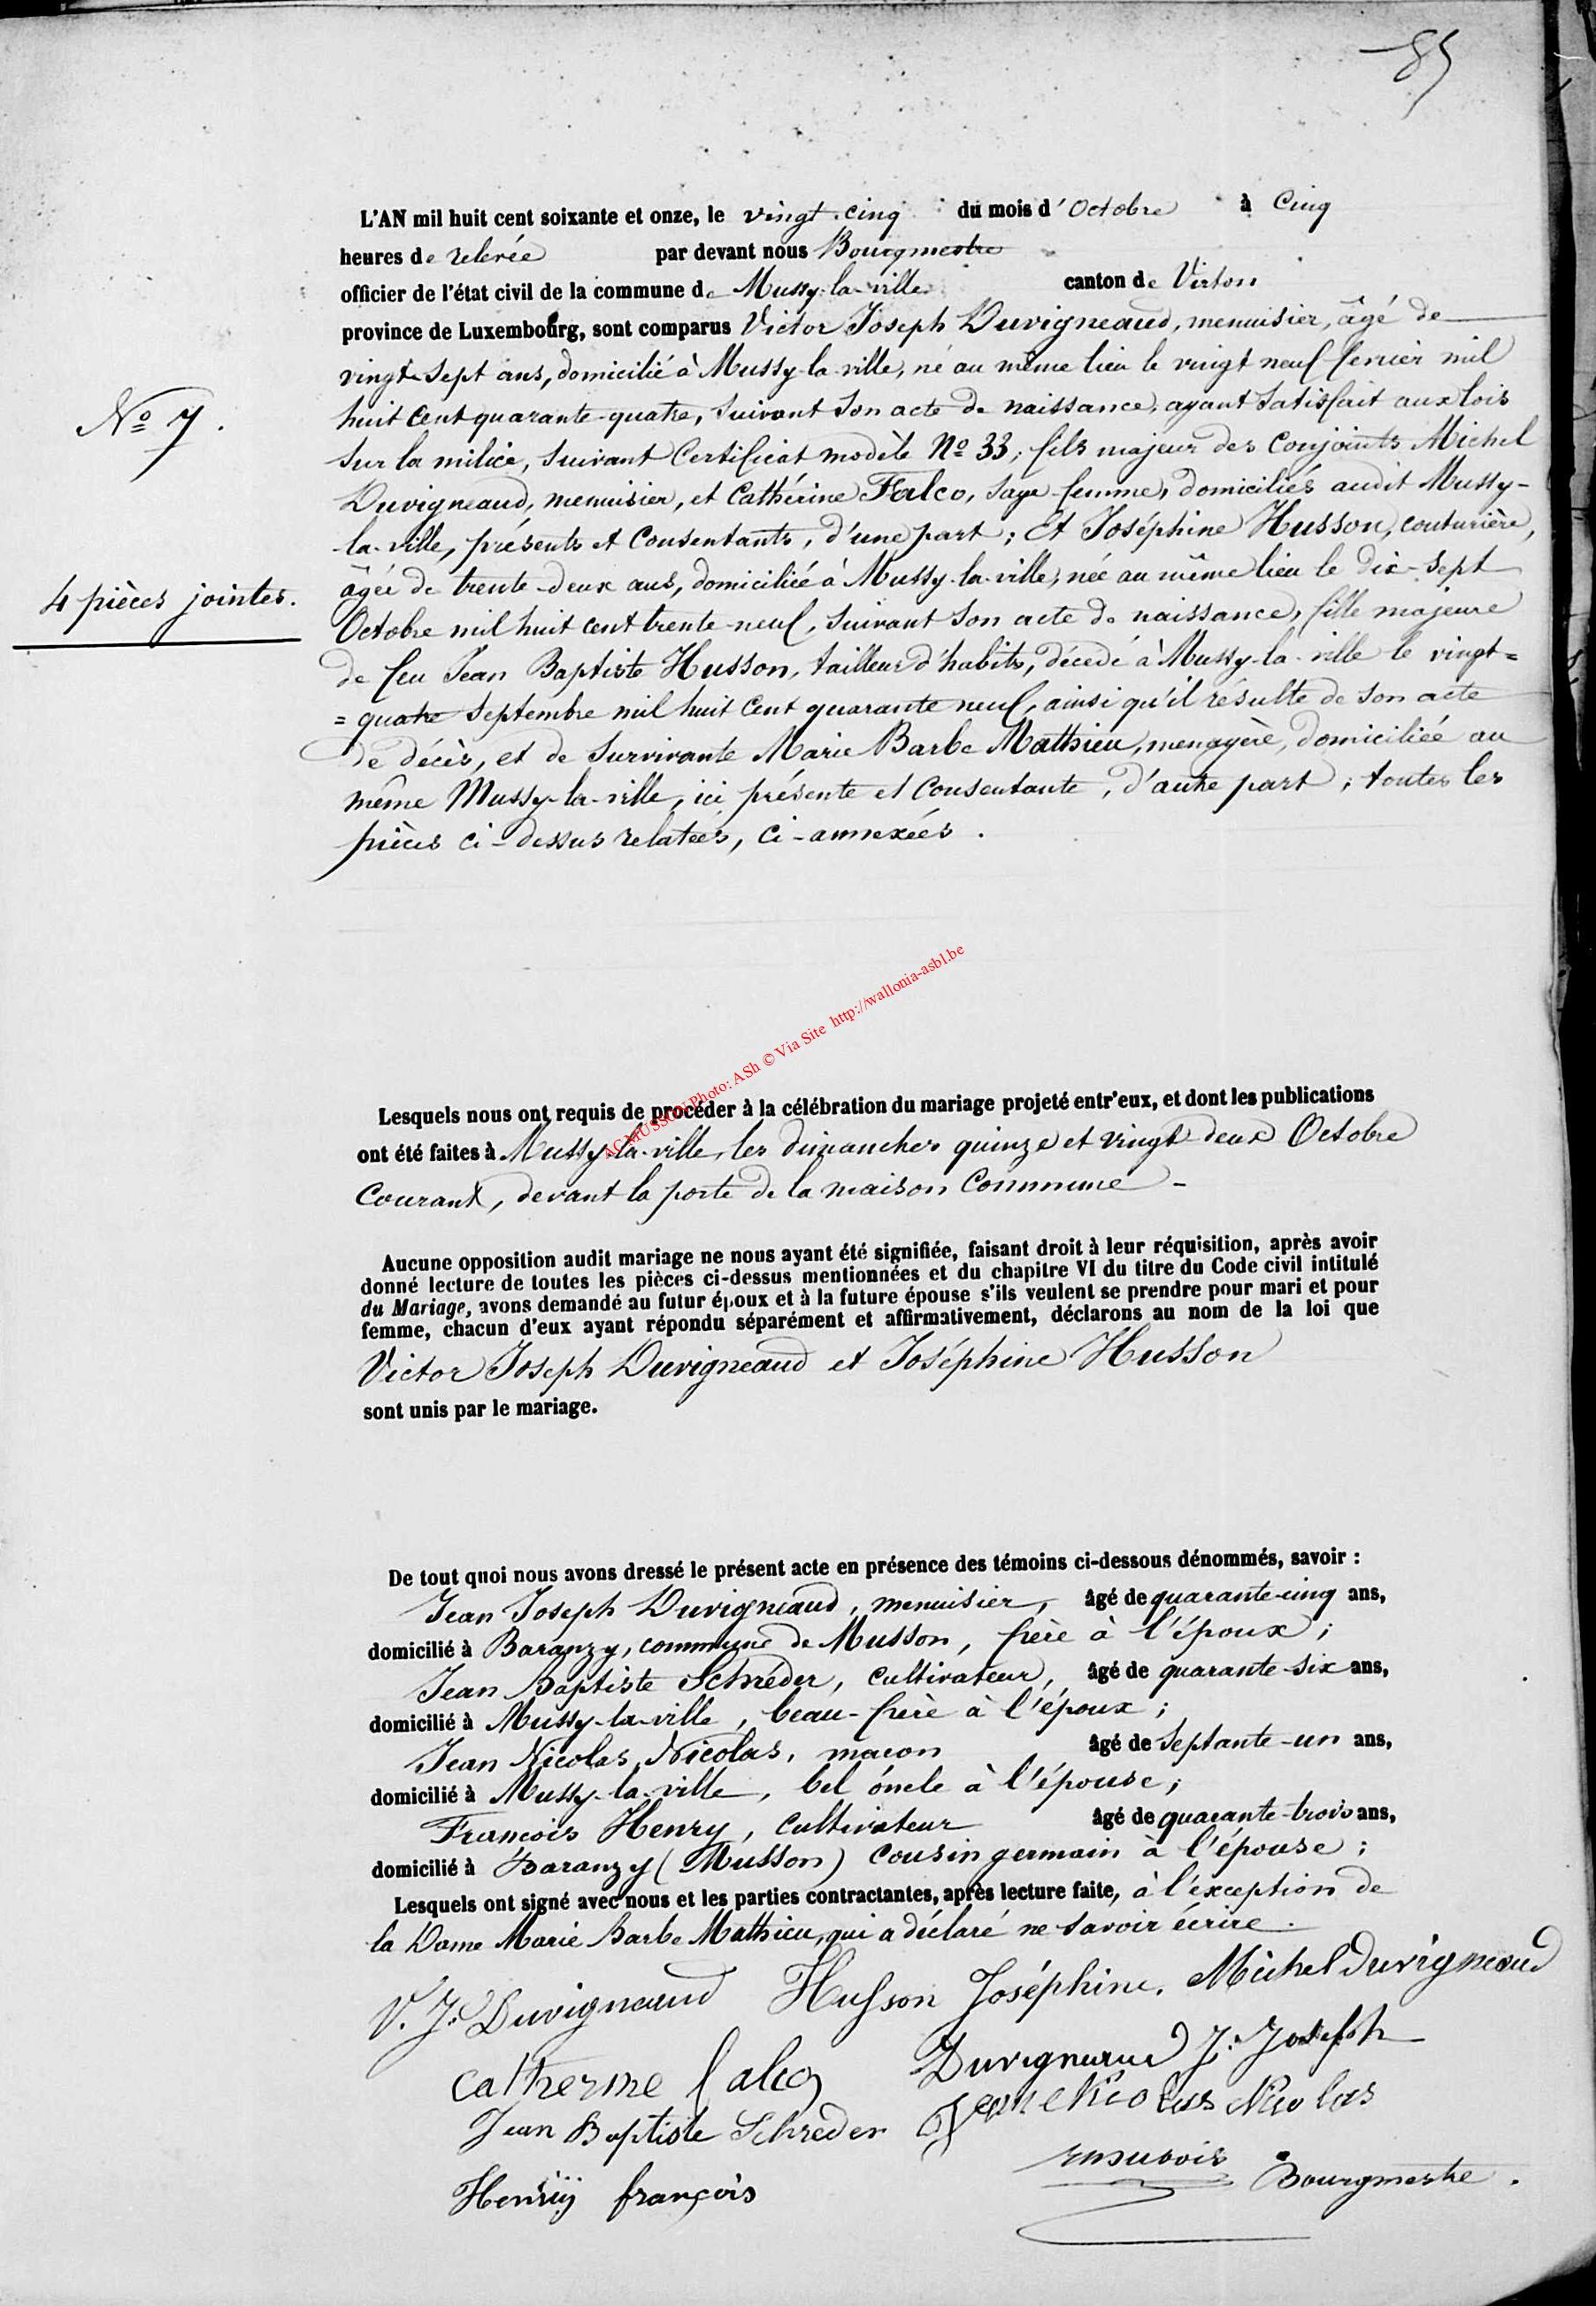 85
L'AN mil huit cent soixante et onze, le vingt-cinq du mois d'Octobre à Cinq
heures de relevée par devant nous Bourgmestre
officier de l'état civil de la commune de Mussy-la-ville canton de Virton
province de Luxembourg, sont comparus Victor Joseph Duvigneaud, menuisier, âgé de
vingt-sept ans, domicilié à Mussy-la-ville, né au même lieu le vingt neuf fevrier mil
N° 7.
huit cent quarante-quatre, suivant son acte de naissance, ayant satisfait aux lois
sur la milice, suivant Certificat modèle N° 33, fils majeur des conjoints Michel
Duvigneaud, menuisier, et Cathérine Falco, sage-femme, domiciliés audit Mussy-
la-ville, présents et consentants, d'une part ; Et Joséphine Husson, couturière,
4 pièces jointes.
âgée de trente-deux ans, domiciliée à Mussy-la-ville, née au même lieu le dix-sept
Octobre mil huit cent trente-neuf, suivant son acte de naissance, fille majeure
de feu Jean Baptiste Husson, tailleur d'habits, décedé à Mussy-la-ville le vingt=
=quatre Septembre mil huit cent quarante neuf, ainsi qu'il résulte de son acte
de décès, et de survivante Marie Barbe Mathieu, menagère, domiciliée au
même Mussy-la-ville, ici présente et consentante, d'autre part ; toutes les
pièces ci-dessus relatées, ci-annexées.
AC MUSSON Photo: ASh © Via Site http://wallonia-asbl.be
Lesquels nous ont requis de procéder à la célébration du mariage projeté entr'eux, et dont les publications
ont été faites à Mussy-la-ville, les dimanches quinze et vingt-deux Octobre
Courant, devant la porte de la maison Commune -
Aucune opposition audit mariage ne nous ayant été signifiée, faisant droit à leur réquisition, après avoir
donné lecture de toutes les pièces ci-dessus mentionnées et du chapitre VI du titre du Code civil intitulé
du Mariage, avons demandé au futur époux et à la future épouse s'ils veulent se prendre pour mari et pour
femme, chacun d'eux ayant répondu séparément et affirmativement, déclarons au nom de la loi que
Victor Joseph Duvigneaud et Joséphine Husson
sont unis par le mariage.
De tout quoi nous avons dressé le présent acte en présence des témoins ci-dessous dénommés, savoir :
Jean Joseph Duvigneaud, menuisier, âgé de quarante-cinq ans,
domicilié à Baranzy, commune de Musson, frère à l'époux ;
Jean Baptiste Schréder, cultivateur, âgé de quarante-six ans,
domicilié à Mussy-la-ville, beau-frère à l'époux ;
Jean Nicolas Nicolas, maçon âgé de Septante-un ans,
domicilié à Mussy-la-ville, bel oncle à l'épouse ;
François Henry, cultivateur âgé de quarante-trois ans,
domicilié à Baranzy (Musson) cousin germain à l'épouse ;
Lesquels ont signé avec nous et les parties contractantes, après lecture faite, à l'exception de
la Dame Marie Barbe Mathieu, qui a déclaré ne savoir écrire.
V. J. Duvigneaud Husson Joséphine. Michel Duvigneaud
Catherine falco Duvigneaud J. Joseph
Jean Baptiste Schreder Jean Nicolas Nicolas
Henry françois Bourgmestre.